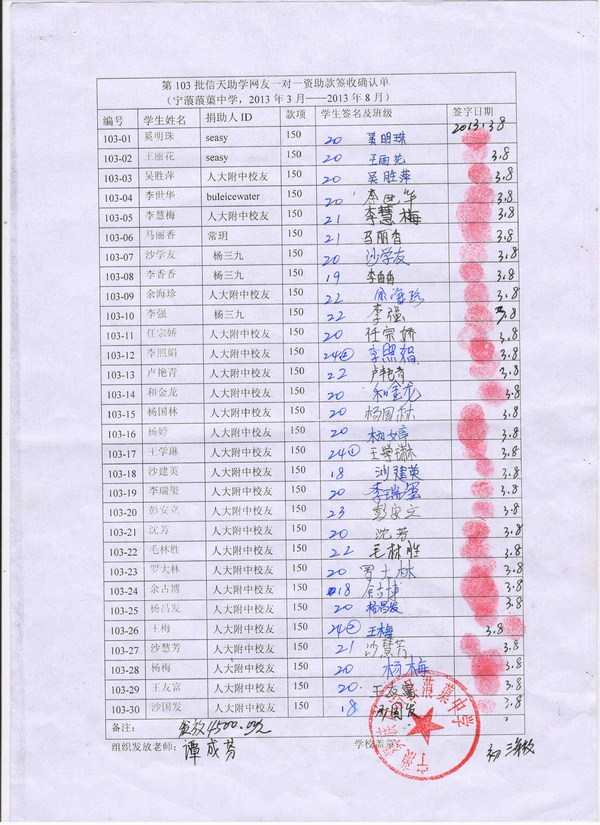 第 103 批信天助学网友一对一资助款签收确认单
（宁蒗蒗蕖中学，2013 年 3 月——2013 年 8 月）
编号 学生姓名 捐助人 ID 款项 学生签名及班级 签字日期
103-01 奚明珠 seasy 150 20 奚明珠 2013.3.8
103-02 王丽花 seasy 150 20 王丽花 3.8
103-03 吴胜萍 人大附中校友 150 20 吴胜萍 3.8
103-04 李世华 buleicewater 150 20 李世华 3.8
103-05 李慧梅 人大附中校友 150 21 李慧梅 3.8
103-06 马丽香 常玥 150 21 马丽香 3.8
103-07 沙学友 杨三九 150 20 沙学友 3.8
103-08 李香香 杨三九 150 19 李香香 3.8
103-09 余海珍 人大附中校友 150 22 余海珍 3.8
103-10 李强 杨三九 150 22 李强 3.8
103-11 任宗娇 人大附中校友 150 20 任宗娇 3.8
103-12 李照娟 人大附中校友 150 24② 李照娟 3.8
103-13 卢艳青 人大附中校友 150 22 卢艳青 3.8
103-14 和金龙 人大附中校友 150 20 和金龙 3.8
103-15 杨国林 人大附中校友 150 20 杨国林 3.8
103-16 杨婷 人大附中校友 150 20 杨婷 3.8
103-17 王学琳 人大附中校友 150 24① 王学琳 3.8
103-18 沙建英 人大附中校友 150 18 沙建英 3.8
103-19 李瑞玺 人大附中校友 150 20 李瑞玺 3.8
103-20 彭安立 人大附中校友 150 23 彭安立 3.8
103-21 沈芳 人大附中校友 150 20 沈芳 3.8
103-22 毛林胜 人大附中校友 150 22 毛林胜 3.8
103-23 罗大林 人大附中校友 150 20 罗大林 3.8
103-24 余古博 人大附中校友 150 18 余古博 3.8
103-25 杨昌发 人大附中校友 150 20 杨昌发 3.8
103-26 王梅 人大附中校友 150 24② 王梅 3.8
103-27 沙慧芳 人大附中校友 150 21 沙慧芳 3.8
103-28 杨梅 人大附中校友 150 20 杨梅 3.8
103-29 王友富 人大附中校友 150 20. 王友富 3.8
103-30 沙国发 人大附中校友 150 18 沙国发
备注： 发放4500.00元
组织发放老师： 谭成芳 学校盖章：
蒗蕖中学